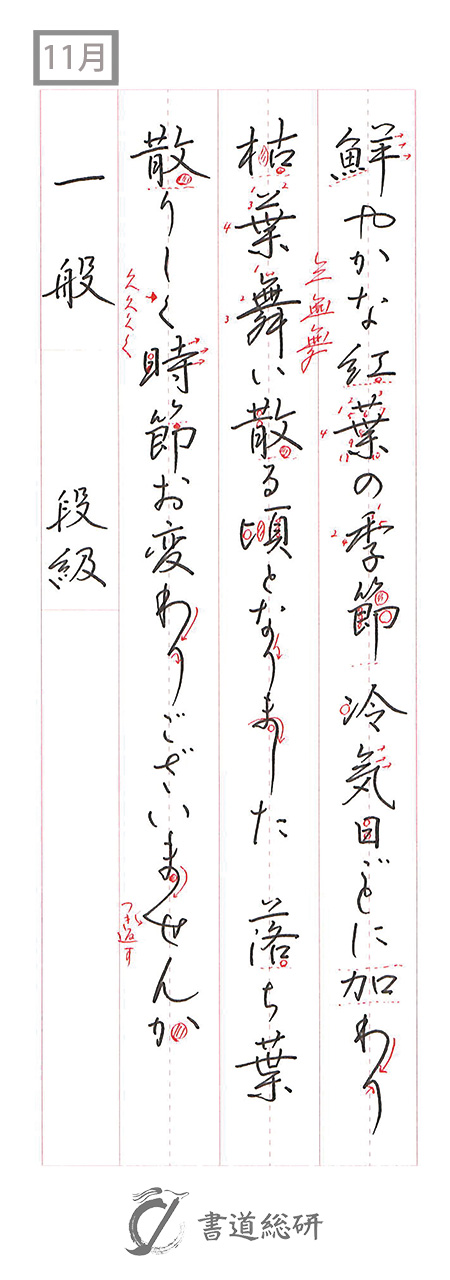 11月
鮮やかな紅葉の季節 冷気日ごとに加わり
枯葉舞い散る頃となりました 落ち葉
散りしく時節お変わりございませんか
一般 段級
つき返す
書道総研